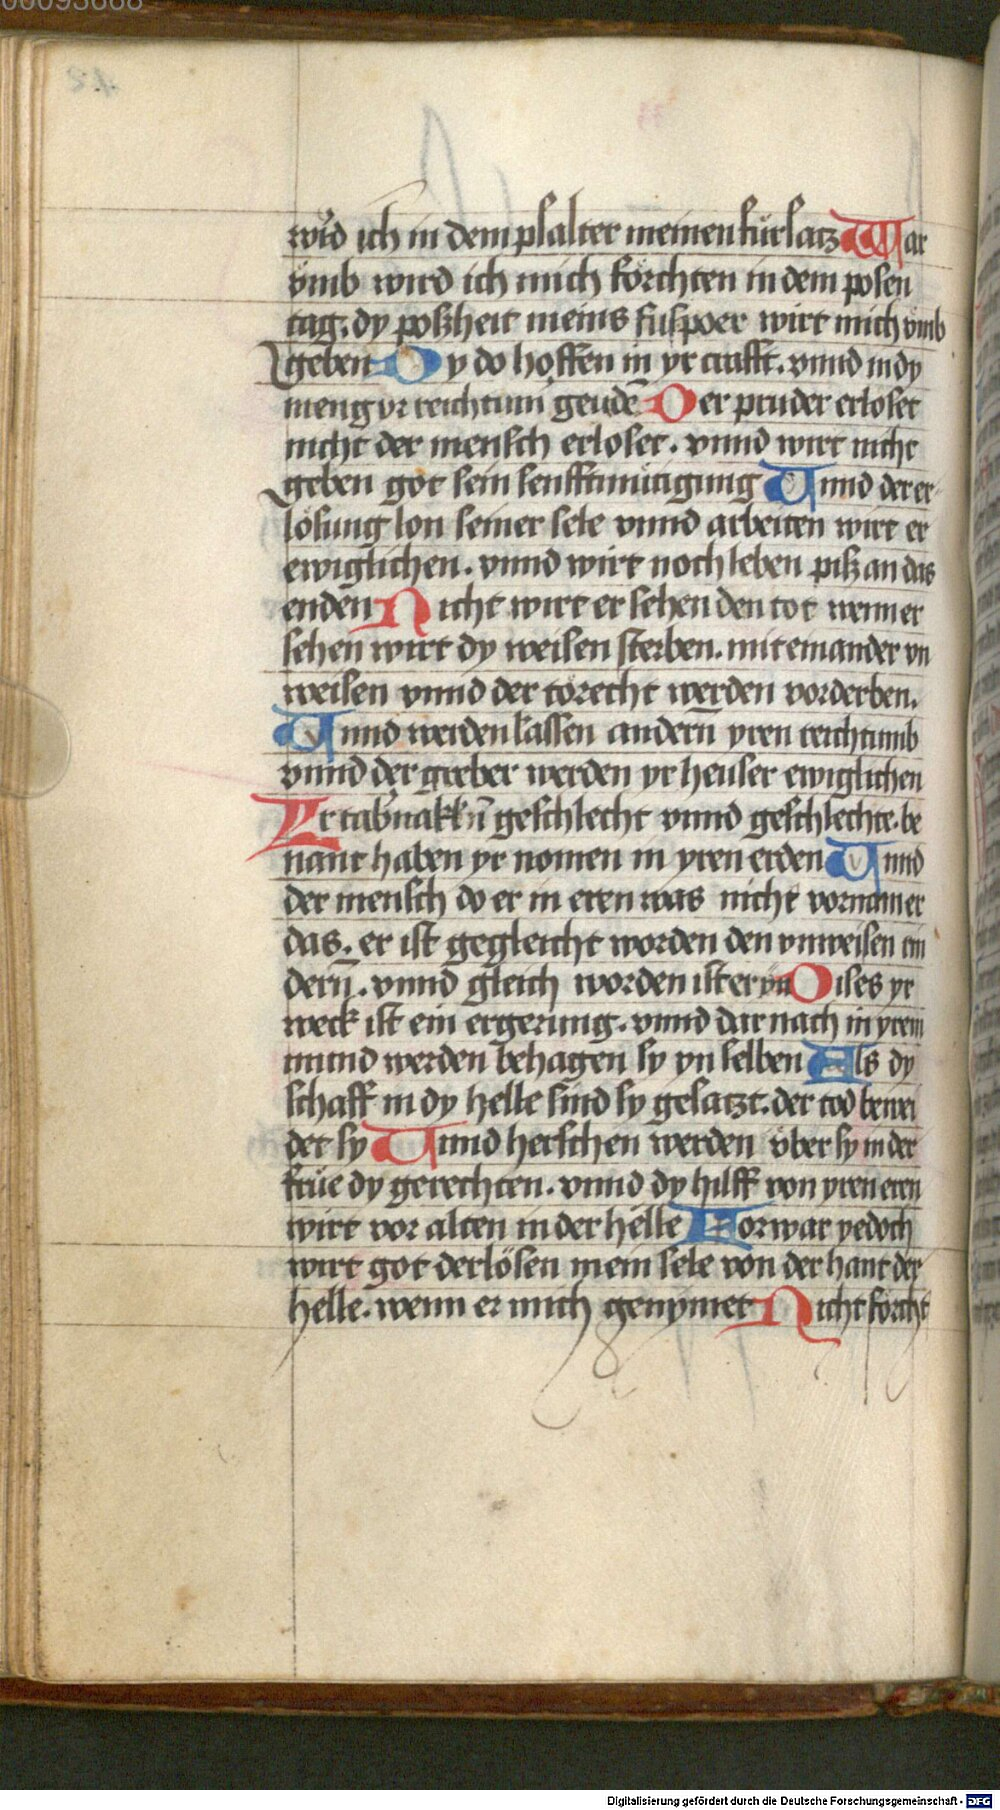 00093668
wird ich in dem psalter meinen fürsacz War
vmb wird ich mich förchten in dem posen
tag. dy poszheit meins fuspoer wirt mich vmb
geben Dy do hoffen in yr crafft. vnnd in dy
meng yr reichtum geudē Der pruder erloset
nicht der mensch erloset. vnnd wirt nicht
geben got sein senfftmütigung Vnnd der er
lösung lon seiner sele vnnd arbeiten wirt er
ewiglichen. vnnd wirt noch leben pisz an das
enden Nicht wirt er sehen den tot wenn er
sehen wirt dy weisen sterben. mit einander vn
weisen vnnd der törecht werden vorderben.
Vnnd werden lassen andern̄ yren reichtumb
vnnd der greber werden yr heuser ewiglichen
Yr geschlecht vnnd geschlechte. be
nant haben yr nomen in yren erden Vnnd
der mensch do er in eren was nicht vornam er
das. er ist gegleicht worden den vnweisen rin
dern̄. vnnd gleich worden ist er yn Dises yr
weck ist ein ergerung. vnnd dar nach in yrem
mund werden behagen sy yn selben Als dy
schaff in dy helle sind sy gesaczt. der tod benei
det sy Vnnd herschen werden über sy in der
früe dy gerechten. vnnd dy hilff von yren eren
wirt vor alten in der helle Vorwar yedoch
wirt got derlösen mein sele von der hant der
helle. wenn er mich genymet Nicht förcht
Digitalisierung gefördert durch die Deutsche Forschungsgemeinschaft - DFG